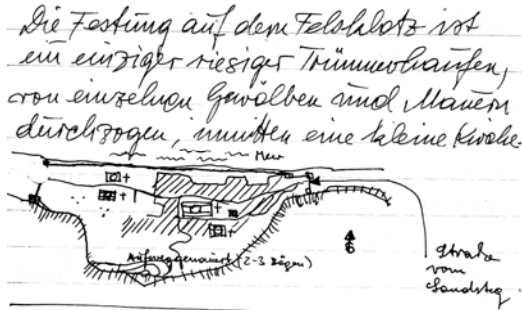 Die Festung auf dem Felsklotz ist
ein einziger riesiger Trümmerhaufen,
von einzelnen Gewölben und Mauern
durchzogen, inmitten eine kleine Kirche.
Meer
(2-3 Bögen)
Straße
vom